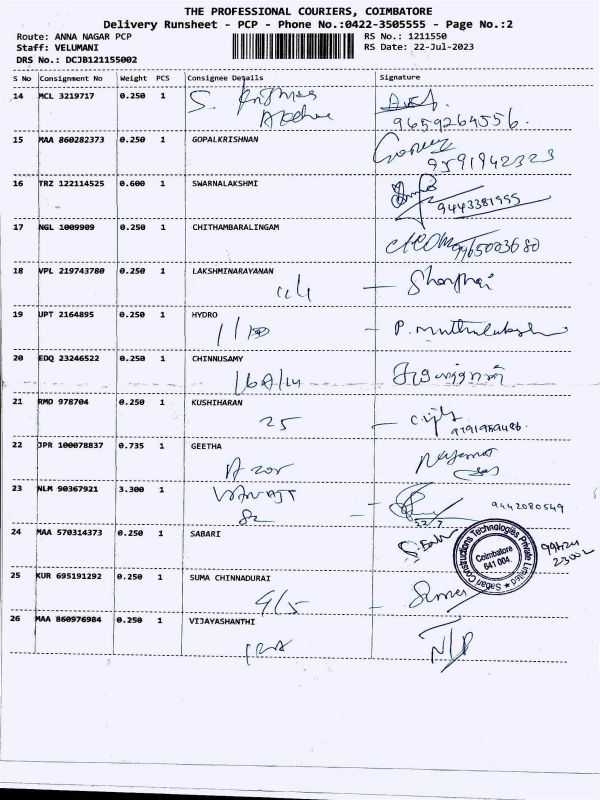 THE PROFESSIONAL COURIERS, COIMBATORE
Delivery Runsheet - PCP - Phone No.:0422-3505555 - Page No.:2
Route: ANNA NAGAR PCP RS No.: 1211550
Staff: VELUMANI RS Date: 22-Jul-2023
DRS No.: DCJB121155002
S No Consignment No Weight PCS Consignee Details Signature
14 MCL 3219717 0.250 1 S.
9659264556.
15 MAA 860282373 0.250 1 GOPALKRISHNAN
9591942323
16 TRZ 122114525 0.600 1 SWARNALAKSHMI
9443381955
17 NGL 1009909 0.250 1 CHITHAMBARALINGAM
9965003680
18 VPL 219743780 0.250 1 LAKSHMINARAYANAN
19 UPT 2164895 0.250 1 HYDRO
P. Muthulakshmi
20 EDQ 23246522 0.250 1 CHINNUSAMY
21 RMD 978704 0.250 1 KUSHIHARAN
25
22 JPR 100078837 0.735 1 GEETHA
23 NLM 90367921 3.300 1
9442080549
24 MAA 570314373 0.250 1 SABARI
Saban Constructions Technologies Private Limited
Coimbatore
641 004.
25 KUR 695191292 0.250 1 SUMA CHINNADURAI
4/5 Suma
26 MAA 860976984 0.250 1 VIJAYASHANTHI
N/P